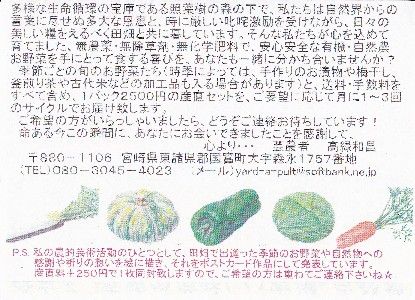 多様な生命循環の宝庫である照葉樹の森の下で、私たちは自然界からの
言葉に尽せぬ多大な恩恵と、時に厳しい叱咤激励を受けながら、日々の
美しい糧をえるべく田畑と共に暮しています。そんな私たちが心を込めて
育てました、無農薬・無除草剤・無化学肥料で、安心安全な有機・自然農
お野菜を手にとって食する喜びを、あなたも一緒に分かち合いませんか?
季節ごとの旬のお野菜たち(時季によっては、手作りのお漬物や梅干し、
釜煎り茶や古代米などの加工品も入る場合があります)と、送料・手数料を
すべて含め、1パック2500円の産直セットを、ご要望に応じて月に1~3回
のサイクルでお届け致します。
ご希望の方がいらっしゃいましたら、どうぞご連絡お待ちしています!
命ある今この瞬間に、あなたにお会いできましたことを感謝して、
心より… 愛農者 高縁和邑
〒880-1106 宮崎県東諸県郡国富町大字森永1757番地
(TEL)080-3045-4023 (メール)yard-a-pult@softbank.ne.jp
P.S. 私の農的芸術活動のひとつとして、田畑で出逢った季節のお野菜や自然物への
感謝や祈りの思いを絵に描き、それをポストカード作品にして発表しています。
産直料+250円で1枚同封致しますので、ご希望の方は重ねてご連絡下さいね☆